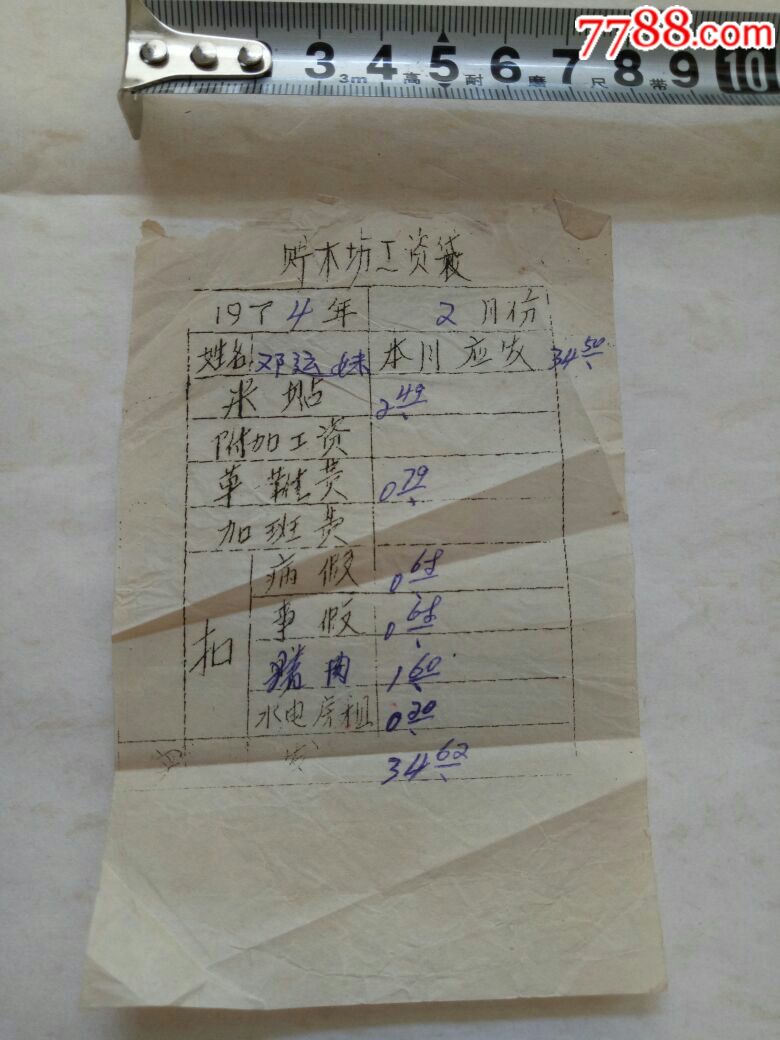 7788.com
3 4 5 6 7 8 9 10
3m 高 耐 磨 尺 带
贮木场工资袋
1974年 2月份
姓名 邓运妹 本月应发 34.50
米贴 2.49
附加工资
草鞋费 0.79
加班费
扣 病假 0.65
事假 0.65
猪肉 1.60
水电房租 0.20
实发 34.62